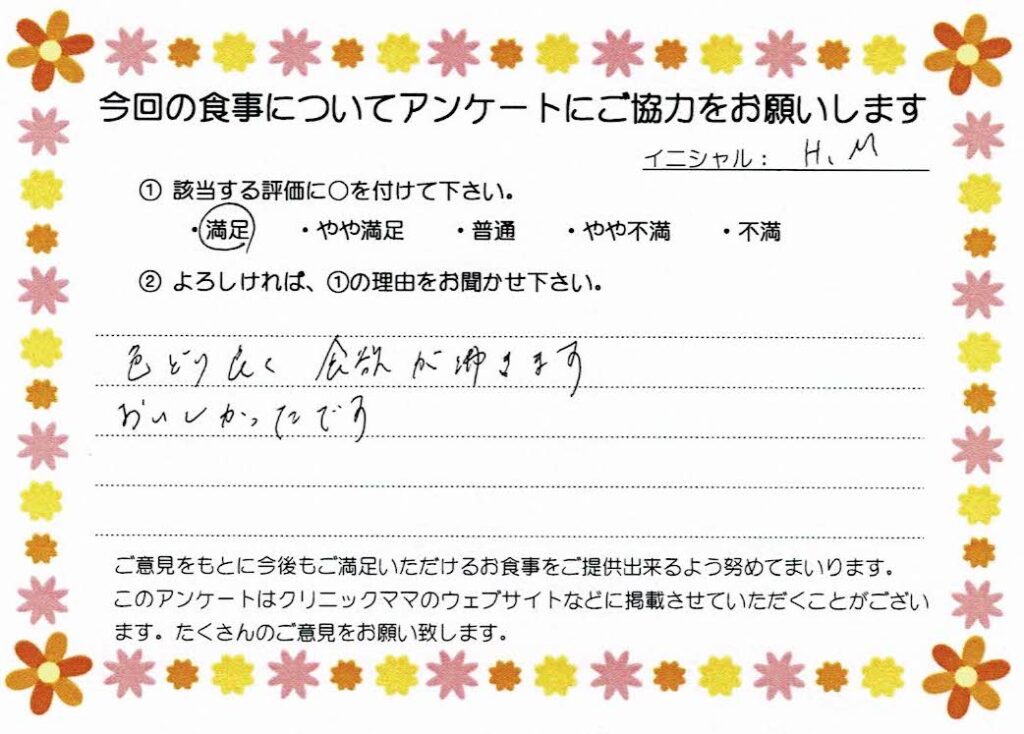 今回の食事についてアンケートにご協力をお願いします
イニシャル： H、M
① 該当する評価に○を付けて下さい。
・満足 ・やや満足 ・普通 ・やや不満 ・不満
② よろしければ、①の理由をお聞かせ下さい。
色どり良く 食欲が沸きます
おいしかったです
ご意見をもとに今後もご満足いただけるお食事をご提供出来るよう努めてまいります。
このアンケートはクリニックママのウェブサイトなどに掲載させていただくことがござい
ます。たくさんのご意見をお願い致します。